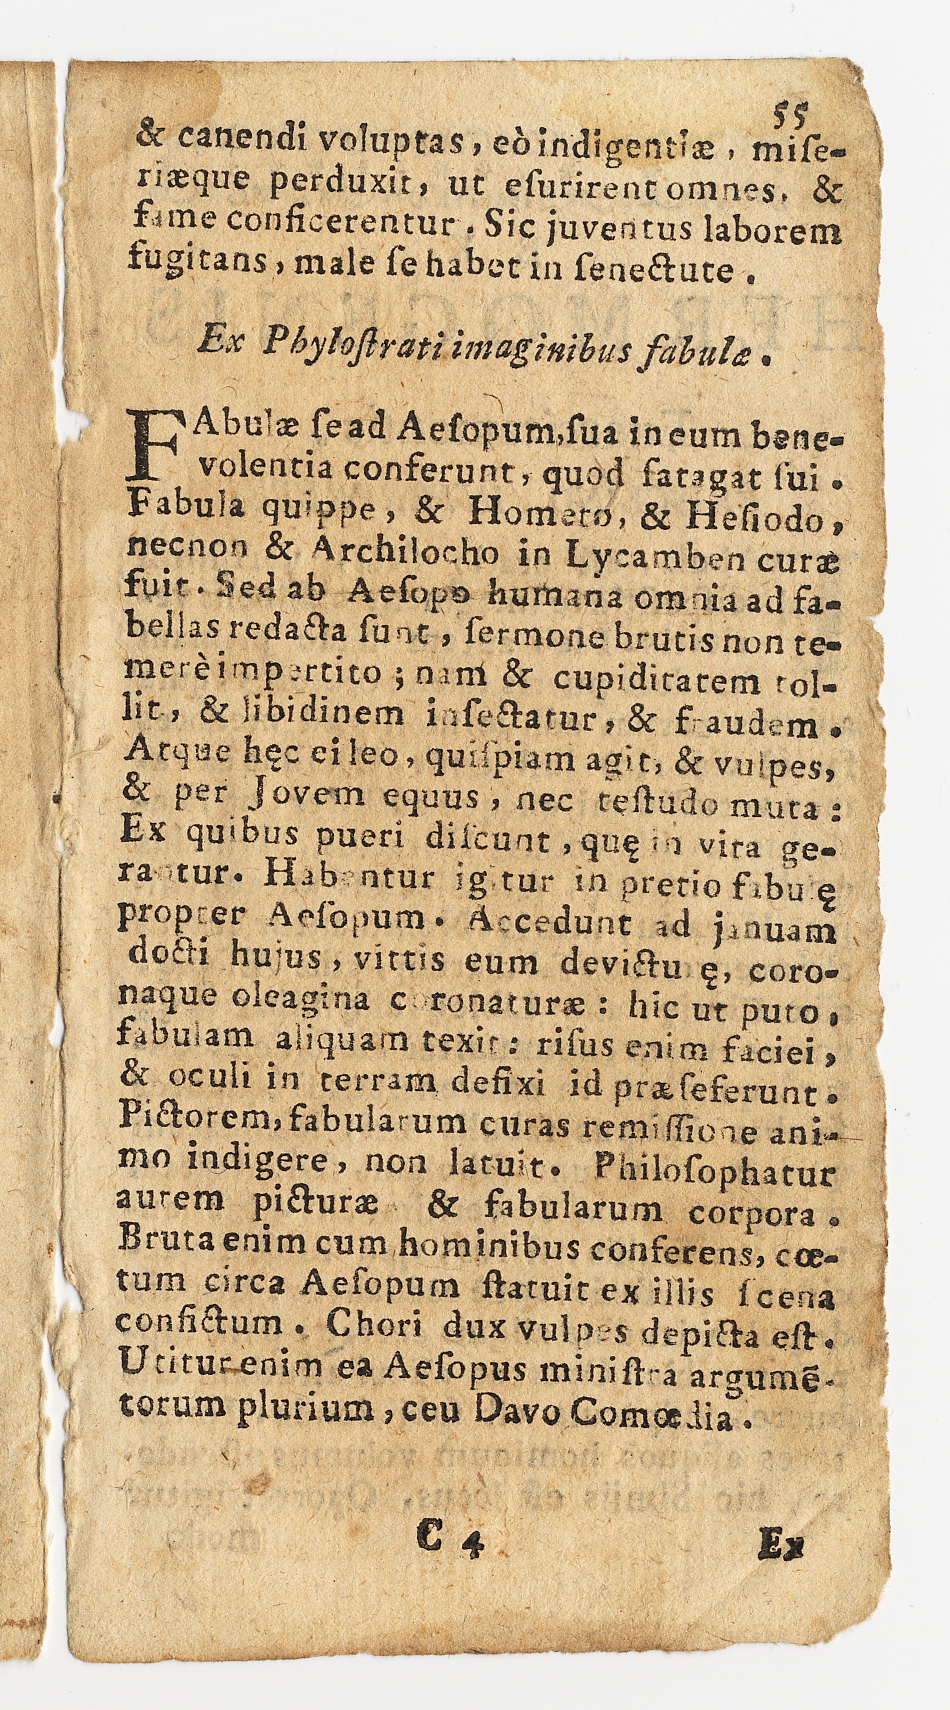 55
& canendi voluptas, eò indigentiæ, miſe-
riæque perduxit, ut eſurirent omnes, &
fame conficerentur. Sic juventus laborem
fugitans, male ſe habet in ſenectute.
Ex Phyloſtrati imaginibus fabulæ.
FAbulæ ſe ad Aeſopum, ſua in eum bene-
volentia conferunt, quod ſatagat ſui.
Fabula quippe, & Homero, & Heſiodo,
necnon & Archilocho in Lycamben curæ
fuit. Sed ab Aeſopo humana omnia ad fa-
bellas redacta ſunt, ſermone brutis non te-
merè impertito; nam & cupiditatem tol-
lit, & libidinem inſectatur, & fraudem.
Atque hęc ei leo, quiſpiam agit, & vulpes,
& per Jovem equus, nec teſtudo muta:
Ex quibus pueri diſcunt, quę in vita ge-
rantur. Habentur igitur in pretio fabulę
propter Aeſopum. Accedunt ad januam
docti hujus, vittis eum devicturę, coro-
naque oleagina coronaturæ: hic ut puto,
fabulam aliquam texit: riſus enim faciei,
& oculi in terram defixi id præ ſeferunt.
Pictorem, fabularum curas remiſſione ani-
mo indigere, non latuit. Philoſophatur
autem picturæ & fabularum corpora.
Bruta enim cum hominibus conferens, cœ-
tum circa Aeſopum ſtatuit ex illis ſcena
confictum. Chori dux vulpes depicta eſt.
Utitur enim ea Aeſopus miniſtra argumē-
torum plurium, ceu Davo Comœdia.
C 4
Ex